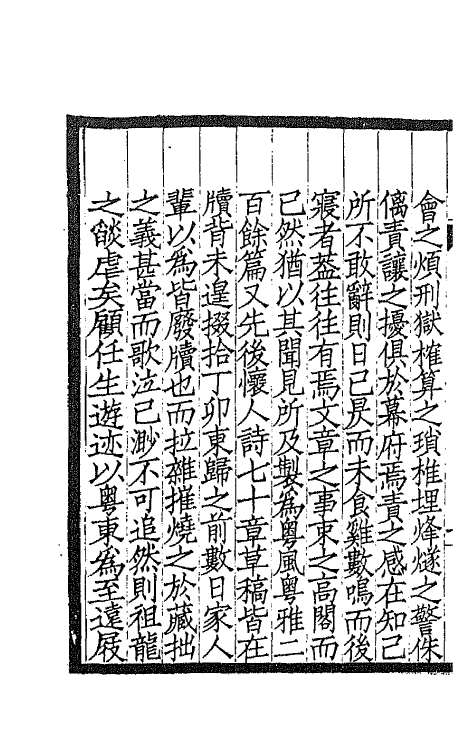 會之煩刑獄榷算之瑣椎埋烽燧之警侏
僪責讓之擾俱於幕府焉責之感在知己
所不敢辭則日已昃而未食雞數鳴而後
寢者葢往往有焉文章之事束之高閣而
已然猶以其聞見所及製為粵風粵雅二
百餘篇又先後懷人詩七十章草稿皆在
牘背未遑掇拾丁卯東歸之前數日家人
輩以為皆廢牘也而拉雜摧燒之於藏拙
之義甚當而歌泣已渺不可追然則祖龍
之燄虐矣顧任生遊迹以粵東為至遠屐